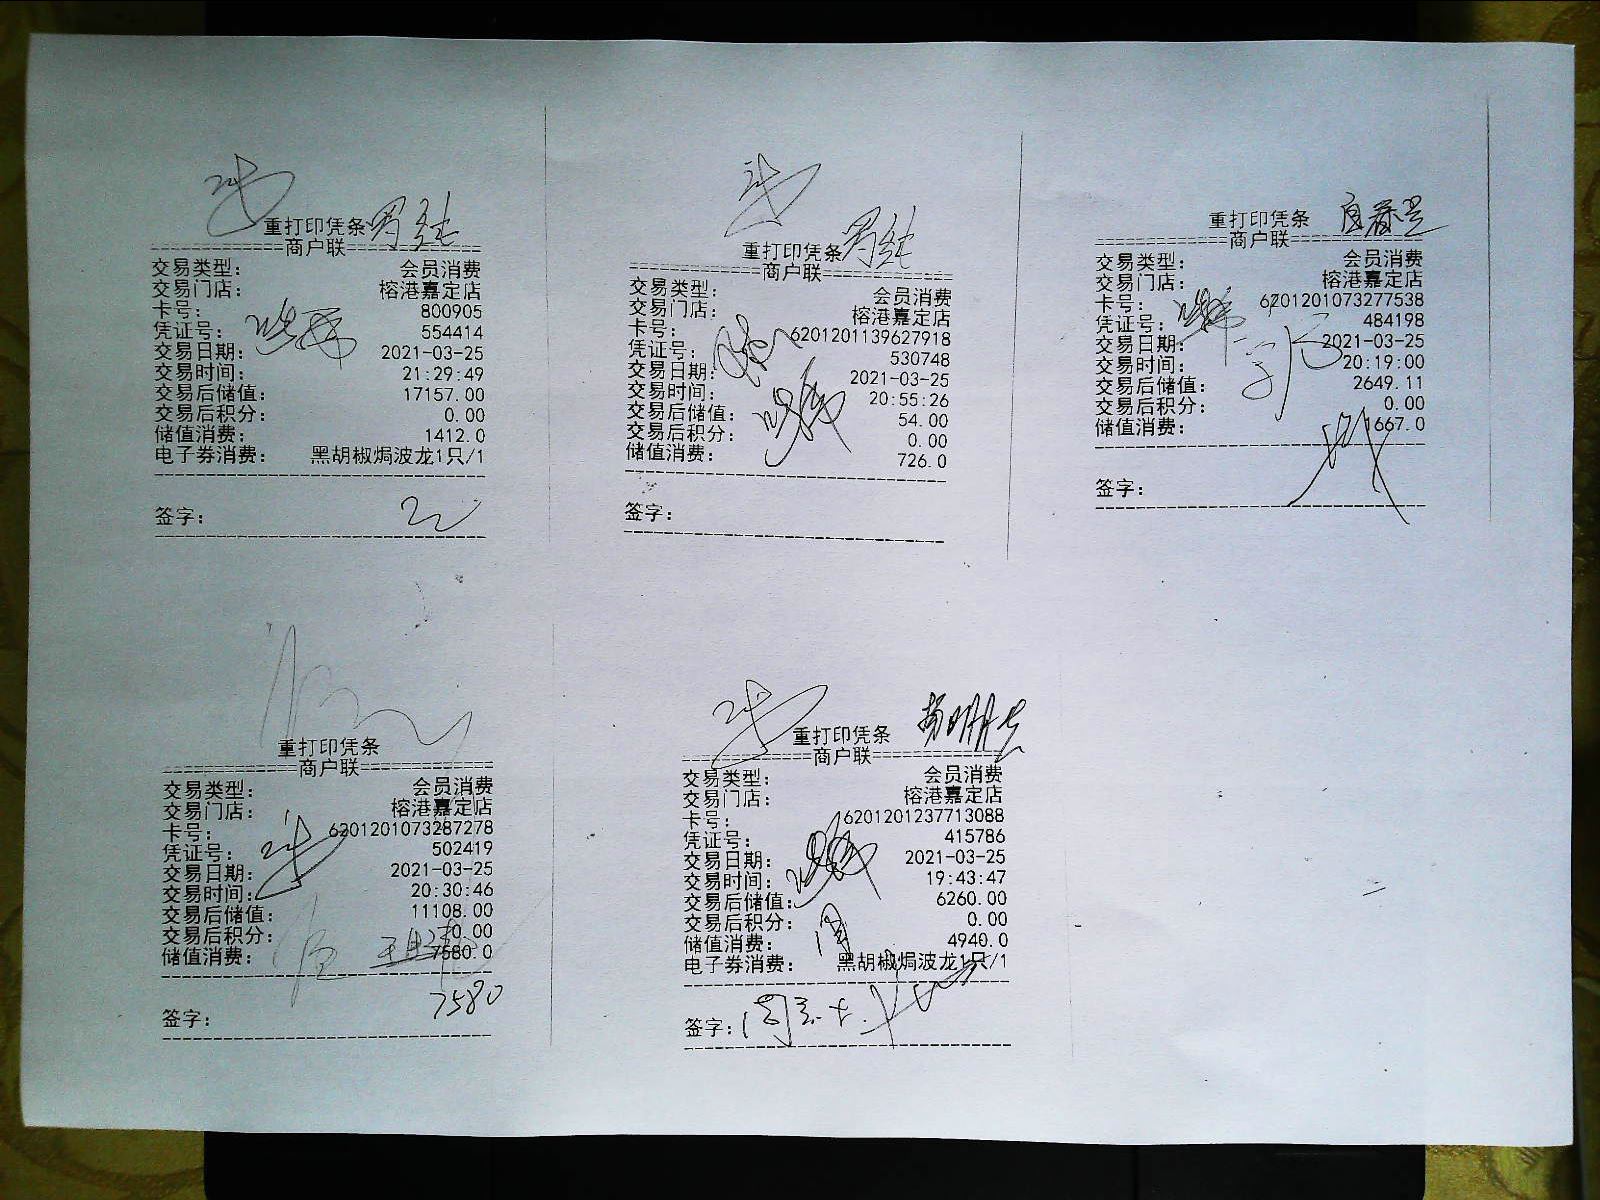 重打印凭条
商户联
交易类型: 会员消费
交易门店: 榕港嘉定店
卡号: 800905
凭证号: 554414
交易日期: 2021-03-25
交易时间: 21:29:49
交易后储值: 17157.00
交易后积分: 0.00
储值消费: 1412.0
电子券消费: 黑胡椒焗波龙1只/1
签字:
重打印凭条
商户联
交易类型: 会员消费
交易门店: 榕港嘉定店
卡号: 6201201139627918
凭证号: 530748
交易日期: 2021-03-25
交易时间: 20:55:26
交易后储值: 54.00
交易后积分: 0.00
储值消费: 726.0
签字:
重打印凭条
商户联
交易类型: 会员消费
交易门店: 榕港嘉定店
卡号: 6201201073277538
凭证号: 484198
交易日期: 2021-03-25
交易时间: 20:19:00
交易后储值: 2649.11
交易后积分: 0.00
储值消费: 1667.0
签字:
重打印凭条
商户联
交易类型: 会员消费
交易门店: 榕港嘉定店
卡号: 6201201073287278
凭证号: 502419
交易日期: 2021-03-25
交易时间: 20:30:46
交易后储值: 11108.00
交易后积分: 0.00
储值消费: 7580.0
7580
签字:
重打印凭条
商户联
交易类型: 会员消费
交易门店: 榕港嘉定店
卡号: 6201201237713088
凭证号: 415786
交易日期: 2021-03-25
交易时间: 19:43:47
交易后储值: 6260.00
交易后积分: 0.00
储值消费: 4940.0
电子券消费: 黑胡椒焗波龙1只/1
签字: